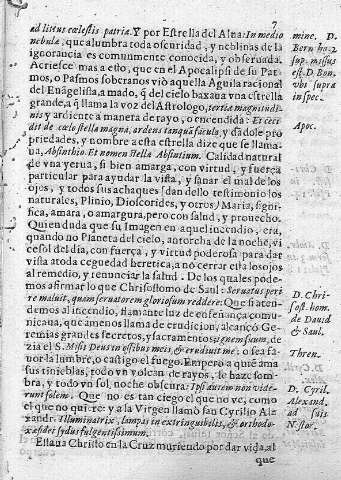 7
ad litus cœlestis patriæ. Y por Estrella del Alua: In medio
nebulæ, que alumbra toda oscuridad, y neblinas de la
ignorancia es comunmente conocida, y obseruada.
Acriesce mas a esto, que en el Apocalipsi de su Pat-
mos, o Pasmos soberanos viò aquella Aguila racional
del Euãgelista, a mado, q̃ del cielo baxaua vna estrella
grande, a q̃ llama la voz del Astrologo, tertiæ magnitudi-
nis y ardiente à manera de rayo, o encendida: Et ceci
dit de cœlo stella magna, ardens tanquã facula, y dãdole pro
piedades, y nombre a esta estrella dize que se llama-
ua, Absinthio. Et nomen stellæ Absintium. Calidad natural
de vna yerua, si bien amarga, con virtud, y fuerça
particular para ayudar la vista, y sanar el mal de los
ojos, y todos sus achaques [dan dello testimonio los
naturales, Plinio, Dioscorides, y otros] Maria, signi-
fica, amara, o amargura, pero con salud, y prouecho.
Quien duda que su Imagen en aquel incendio, era,
quando no Planeta del cielo, antorcha de la noche, vi
ces del dia, con fuerça, y virtud poderosa para dar
vista a toda ceguedad heretica, a no cerrar ella los ojos
al remedio, y renunciar la salud. De los quales pode-
mos afirmar lo que Chrisostomo de Saul: Seruatus peri
re maluit, quam seruatorem gloriosum reddere: Que si aten-
demos al incendio, flamante luz de enseñança comu-
nicaua, que àmenos llama de erudicion, alcançò Ge-
remias grandes secretos, y sacramentos: ignem suum, de
zia el S. Misit Deus in ossibus meis, & erudiuit me: o sea fa-
uor la lumbre, o castigo el fuego. Empero a quiẽ ama
sus tinieblas, todo vn volcan de rayos, se haze sombra,
y todo vn sol, noche obscura: Ipsi autem non vide-
runt solem. Que no es tan ciego el que no ve, como
el que no quiere: y a la Virgen llamò san Cyrilio Ale
xandr. Illuminatrix, lampas inextinguibilis, & orthodo-
xæ fidei sydus fulgentissimum.
Estaua Christo en la Cruz muriendo por dar vida, al
que
mine. D.
Bern ho. 2
sup. missus
est. D. Bon.
vbi supra
in spec.
Apoc.
D. Chri-
sost. hom.
de Dauid
& Saul.
Thren.
D. Cyril.
Alexand.
ad suis
Nestor.